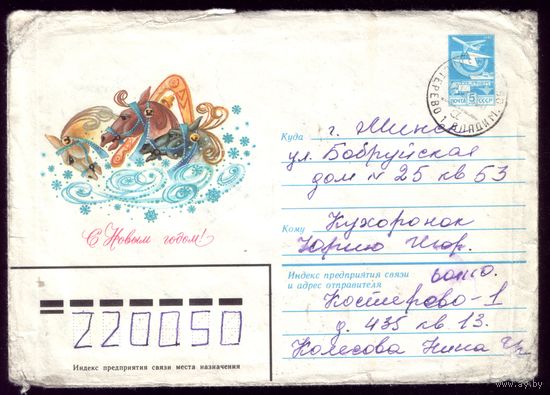 ПОЧТА 5 СССР
ТЕРЕВО 1 ВЛАДИМ.
Куда г. Минск
ул. Бобруйская
дом № 25 кв 53
Кому Кухоронак
Юрию Игор.
С Новым годом!
Индекс предприятия связи
и адрес отправителя
Костерово-1
д. 435 кв. 13.
Колесова Нина
220050
Индекс предприятия связи места назначения
www.ay.by